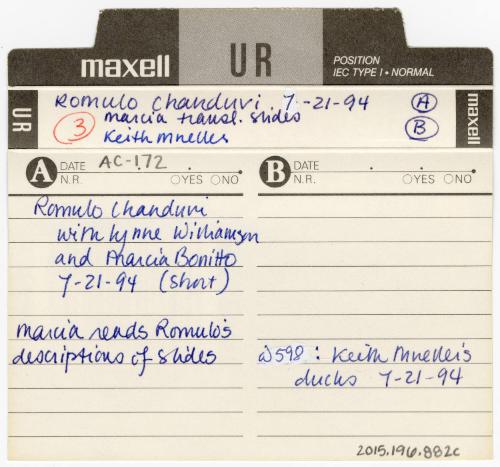 maxell
UR
POSITION
IEC TYPE I • NORMAL
UR
Romulo Chanduvi 7-21-94
3
marcia transl. slides
Keith Mueller
A
B
maxell
A
DATE AC-172
N.R. YES NO
B
DATE
N.R. YES NO
Romulo Chanduvi
with Lynne Williamson
and Marcia Bonitto
7-21-94 (short)
Marcia reads Romulo's
descriptions of slides
W598: Keith Mueller's
ducks 7-21-94
2015.196.882c